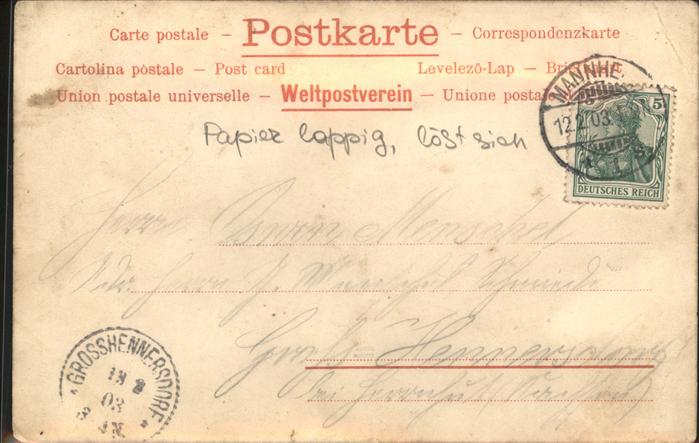 Carte postale – Postkarte – Correspondenzkarte
Cartolina postale – Post card Levelező-Lap –
Union postale universelle – Weltpostverein – Unione
MANNHE
12.2.03.
5
DEUTSCHES REICH
Papier lappig, löst sich
Herrn Menschel
Herrn
Groß-Hennersdorf
bei Herrnhut (Sachsen)
GROSSHENNERSDORF
03